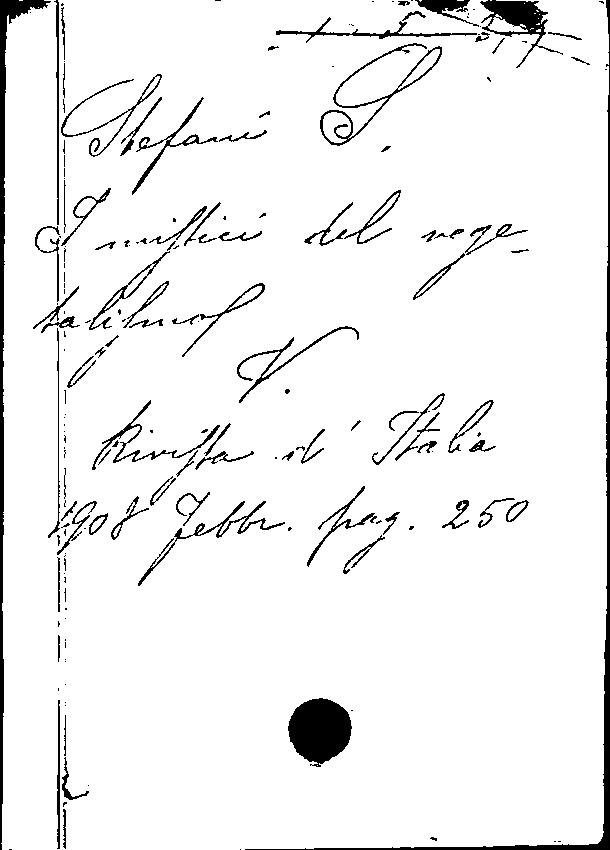 Stefani S.
I mistici del vege-
talismo
V.
Rivista d' Italia
1908 Febbr. pag. 250